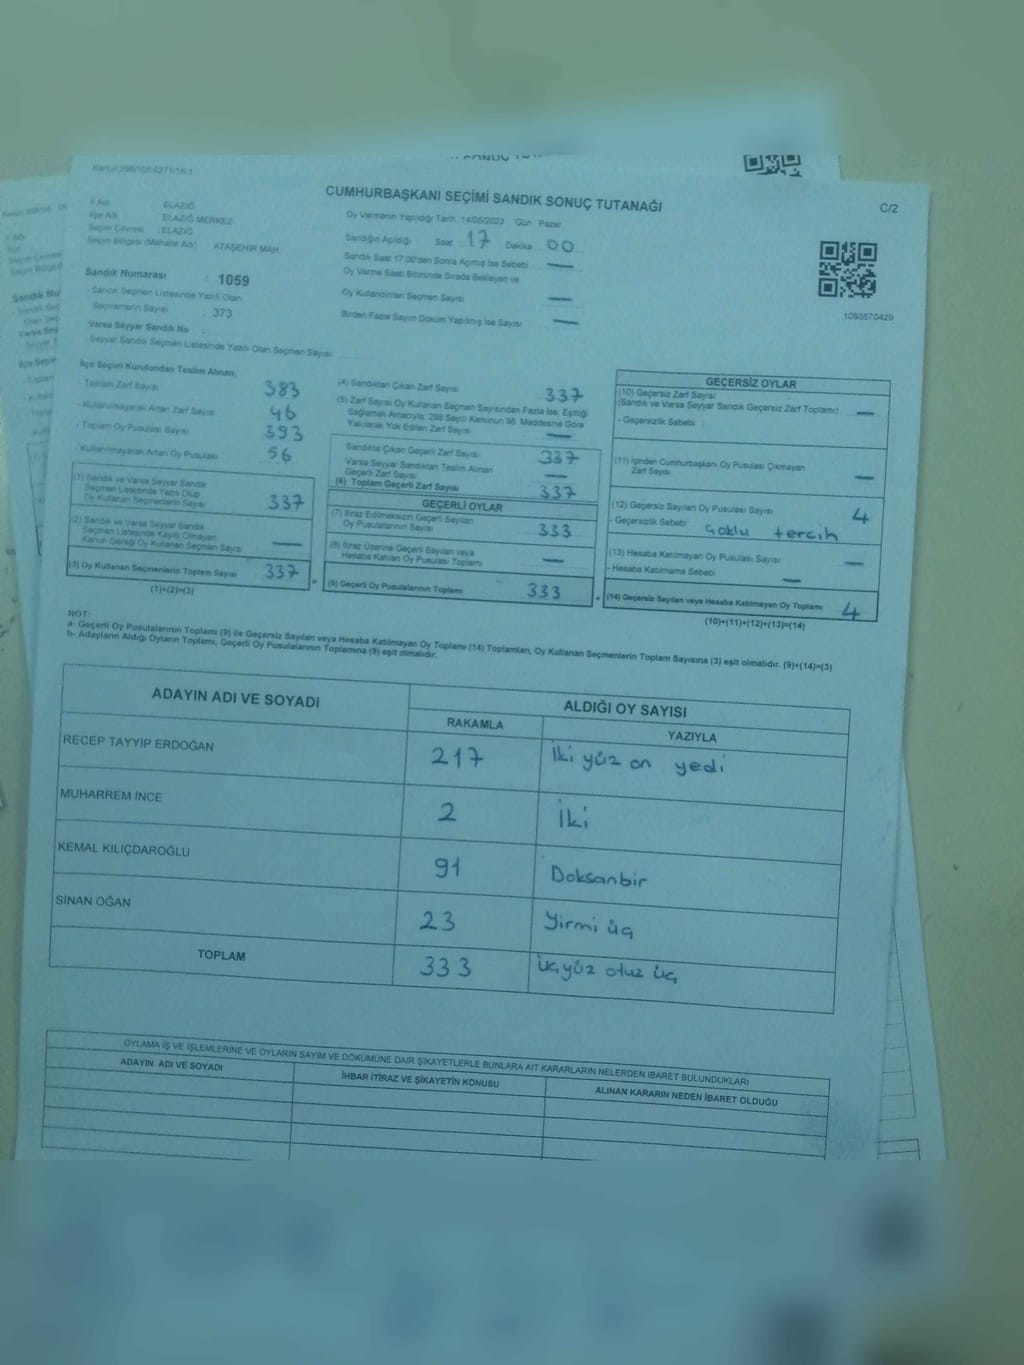 CUMHURBAŞKANI SEÇİMİ SANDIK SONUÇ TUTANAĞI
C/2
İl Adı : ELAZIĞ
İlçe Adı : ELAZIĞ MERKEZ
Seçim Çevresi : ELAZIĞ
Seçim Bölgesi (Mahalle Adı) ATAŞEHİR MAH.
Sandık Numarası : 1059
- Sandık Seçmen Listesinde Yazılı Olan
Seçmenlerin Sayısı : 373
Varsa Seyyar Sandık No :
- Seyyar Sandık Seçmen Listesinde Yazılı Olan Seçmen Sayısı
Oy Vermenin Yapıldığı Tarih :14/05/2023 Gün Pazar
Sandığın Açıldığı Saat 17 Dakika 00
Sandık Saat 17:00'den Sonra Açılmış İse Sebebi —
Oy Verme Saati Bitiminde Sırada Bekleyen ve
Oy Kullandırılan Seçmen Sayısı —
Birden Fazla Sayım Döküm Yapılmış İse Sayısı —
1093570429
İlçe Seçim Kurulundan Teslim Alınan:
- Toplam Zarf Sayısı 383
- Kullanılmayarak Artan Zarf Sayısı 46
- Toplam Oy Pusulası Sayısı 393
- Kullanılmayarak Artan Oy Pusulası 56
(1) Sandık ve Varsa Seyyar Sandık
Seçmen Listesinde Yazılı Olup
Oy Kullanan Seçmenlerin Sayısı 337
(2) Sandık ve Varsa Seyyar Sandık
Seçmen Listesinde Kayıtlı Olmayan
Kanun Gereği Oy Kullanan Seçmen Sayısı —
(3) Oy Kullanan Seçmenlerin Toplam Sayısı 337
(1)+(2)=(3)
(4) Sandıktan Çıkan Zarf Sayısı 337
(5) Zarf Sayısı Oy Kullanan Seçmen Sayısından Fazla İse, Eşitliği
Sağlamak Amacıyla, 298 Sayılı Kanunun 98. Maddesine Göre
Yakılarak Yok Edilen Zarf Sayısı —
Sandıkta Çıkan Geçerli Zarf Sayısı 337
Varsa Seyyar Sandıktan Teslim Alınan
Geçerli Zarf Sayısı —
(6) Toplam Geçerli Zarf Sayısı 337
GEÇERLİ OYLAR
(7) İtiraz Edilmeksizin Geçerli Sayılan
Oy Pusulalarının Sayısı 333
(8) İtiraz Üzerine Geçerli Sayılan veya
Hesaba Katılan Oy Pusulası Toplamı —
(9) Geçerli Oy Pusulalarının Toplamı 333
GEÇERSİZ OYLAR
(10) Geçersiz Zarf Sayısı
(Sandık ve Varsa Seyyar Sandık Geçersiz Zarf Toplamı) —
- Geçersizlik Sebebi :
(11) İçinden Cumhurbaşkanı Oy Pusulası Çıkmayan
Zarf Sayısı —
(12) Geçersiz Sayılan Oy Pusulası Sayısı 4
- Geçersizlik Sebebi : Çoklu tercih
(13) Hesaba Katılmayan Oy Pusulası Sayısı —
- Hesaba Katılmama Sebebi : —
(14) Geçersiz Sayılan veya Hesaba Katılmayan Oy Toplamı 4
(10)+(11)+(12)+(13)=(14)
NOT:
a- Geçerli Oy Pusulalarının Toplamı (9) ile Geçersiz Sayılan veya Hesaba Katılmayan Oy Toplamı (14) Toplamları, Oy Kullanan Seçmenlerin Toplam Sayısına (3) eşit olmalıdır. (9)+(14)=(3)
b- Adayların Aldığı Oyların Toplamı, Geçerli Oy Pusulalarının Toplamına (9) eşit olmalıdır.
ADAYIN ADI VE SOYADI ALDIĞI OY SAYISI
RAKAMLA YAZIYLA
RECEP TAYYİP ERDOĞAN 217 İki yüz on yedi
MUHARREM İNCE 2 İki
KEMAL KILIÇDAROĞLU 91 Doksanbir
SİNAN OĞAN 23 Yirmi üç
TOPLAM 333 Üçyüz otuz üç
OYLAMA İŞ VE İŞLEMLERİNE VE OYLARIN SAYIM VE DÖKÜMÜNE DAİR ŞİKAYETLERLE BUNLARA AİT KARARLARIN NELERDEN İBARET BULUNDUKLARI
ADAYIN ADI VE SOYADI İHBAR İTİRAZ VE ŞİKAYETİN KONUSU ALINAN KARARIN NEDEN İBARET OLDUĞU